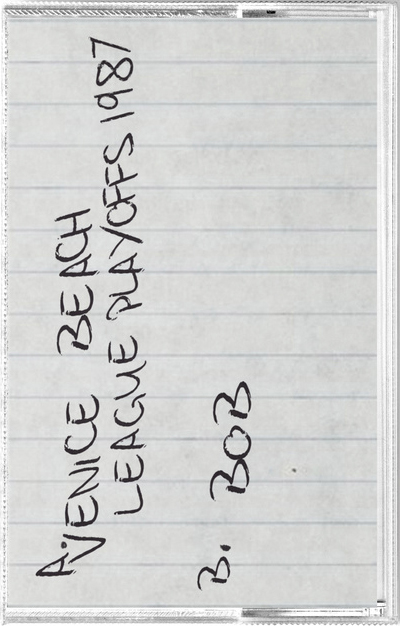 A. VENICE BEACH
LEAGUE PLAYOFFS 1987
B. BOB